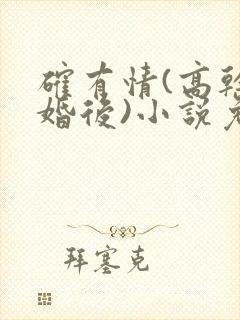 確有情(高幹
婚後)小説
拜塞克